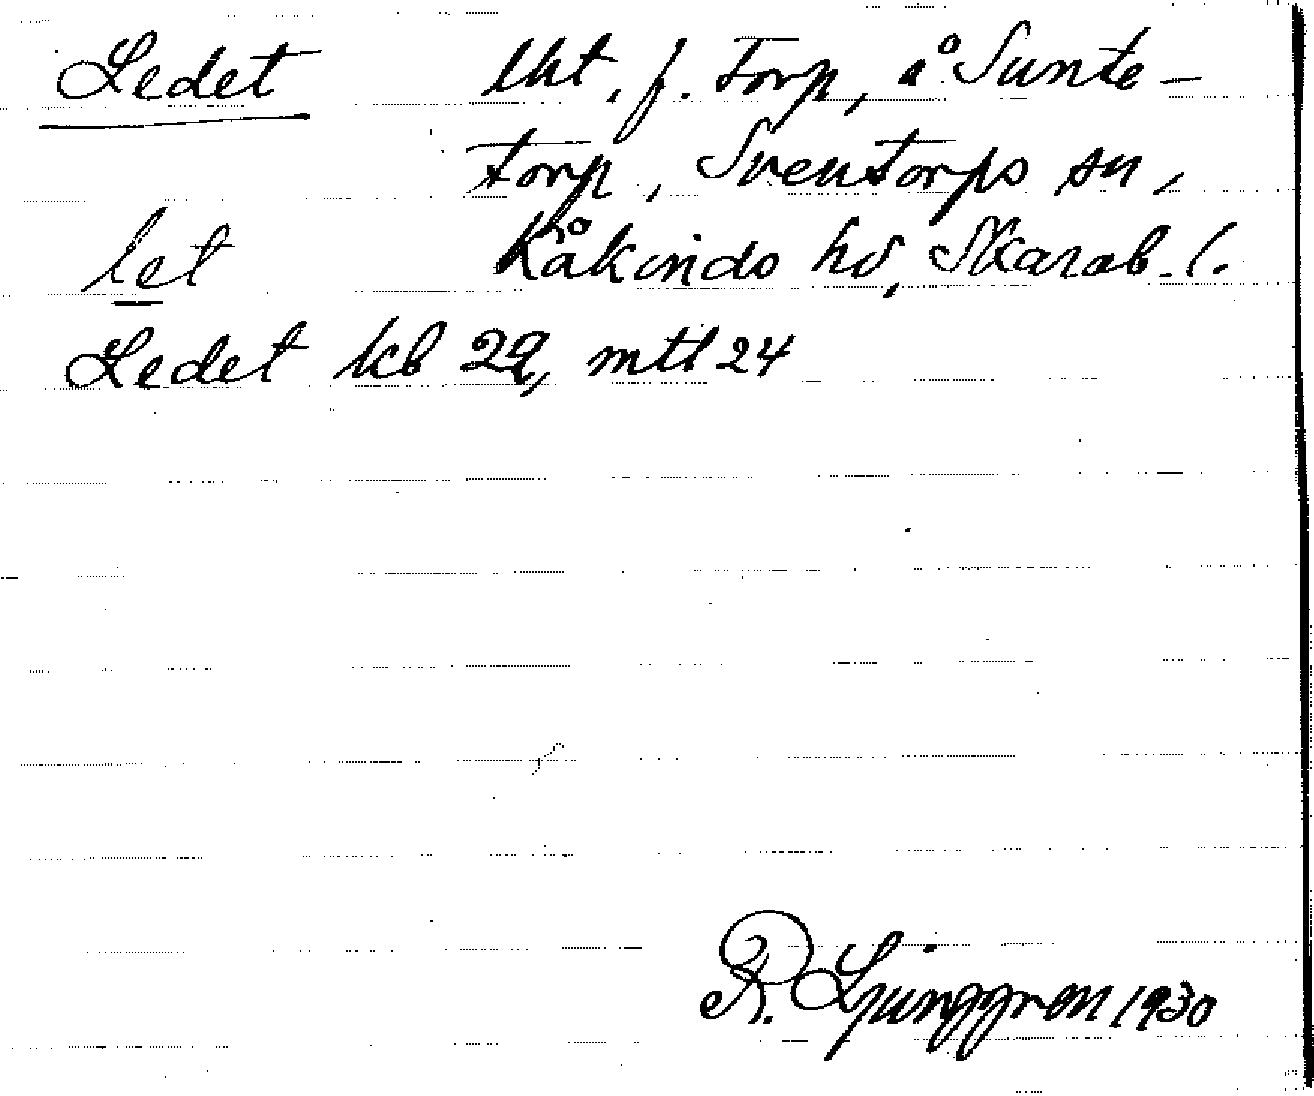 Ledet lht. f. Torp, å Sunte-
torp, Sventorps sn,
let Kåkinds hd, Skarab. l.
Ledet kb 29, mtl 24
R. Ljunggren 1930